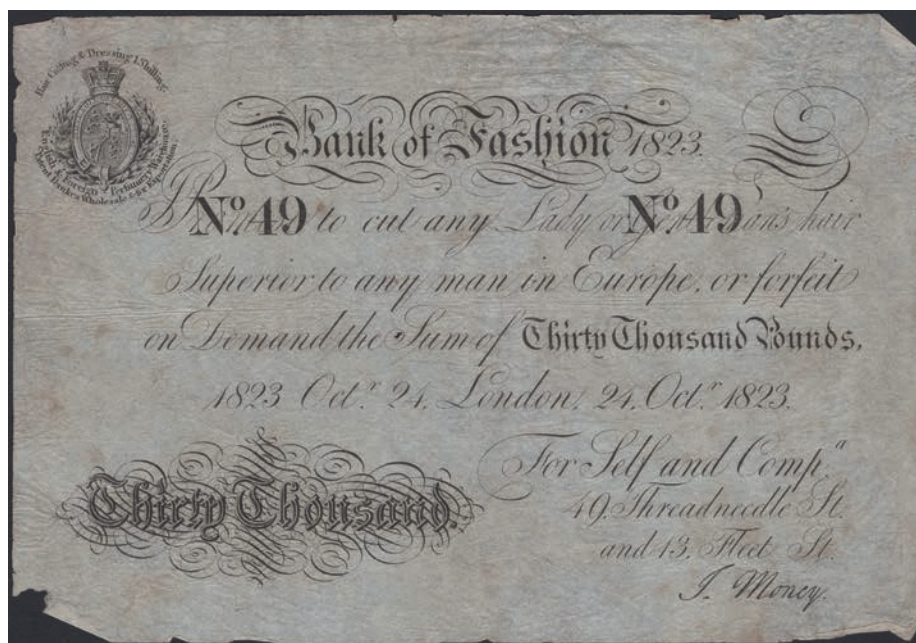 Hair Cutting & Dressing 1 Shilling.
English & Foreign Perfumery Warehouse.
Wholesale & for Exportation
Bank of Fashion 1823.
I No. 49 to cut any Lady or No. 49 hair
Superior to any man in Europe, or forfeit
on Demand the Sum of Thirty Thousand Pounds,
1823 Octr. 24. London. 24. Octr. 1823.
Thirty Thousand.
For Self and Compa.
49. Threadneedle St.
and 13. Fleet St.
J. Money.